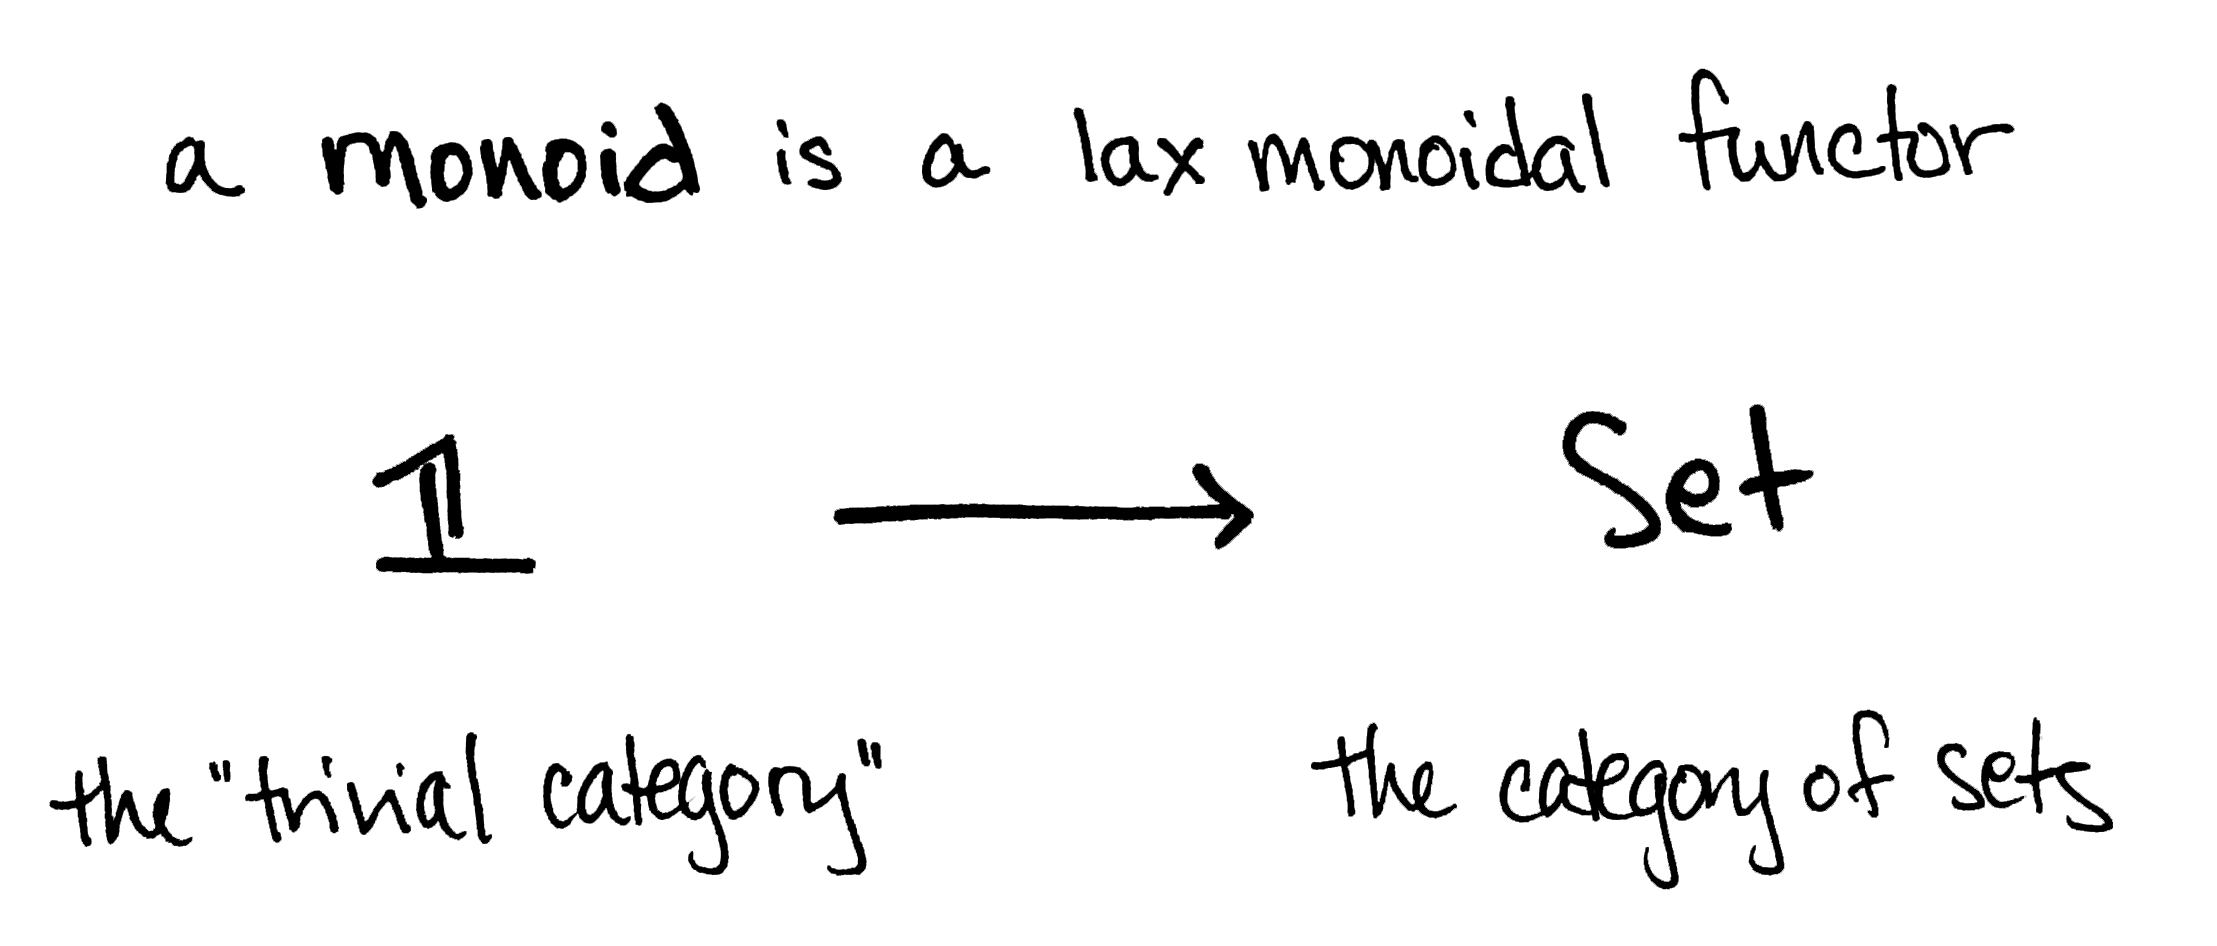 a monoid is a lax monoidal functor
1 → Set
the "trivial category" the category of sets